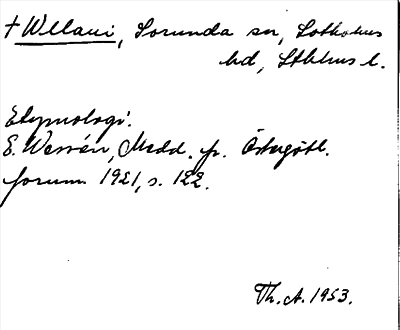 † Wllaui, Sorunda sn, Sotholms
hd, Sthlms l.
Etymologi.
E. Wessén, Medd. fr. Östergötl.
fornm. 1921, s. 122.
Th. A. 1953.